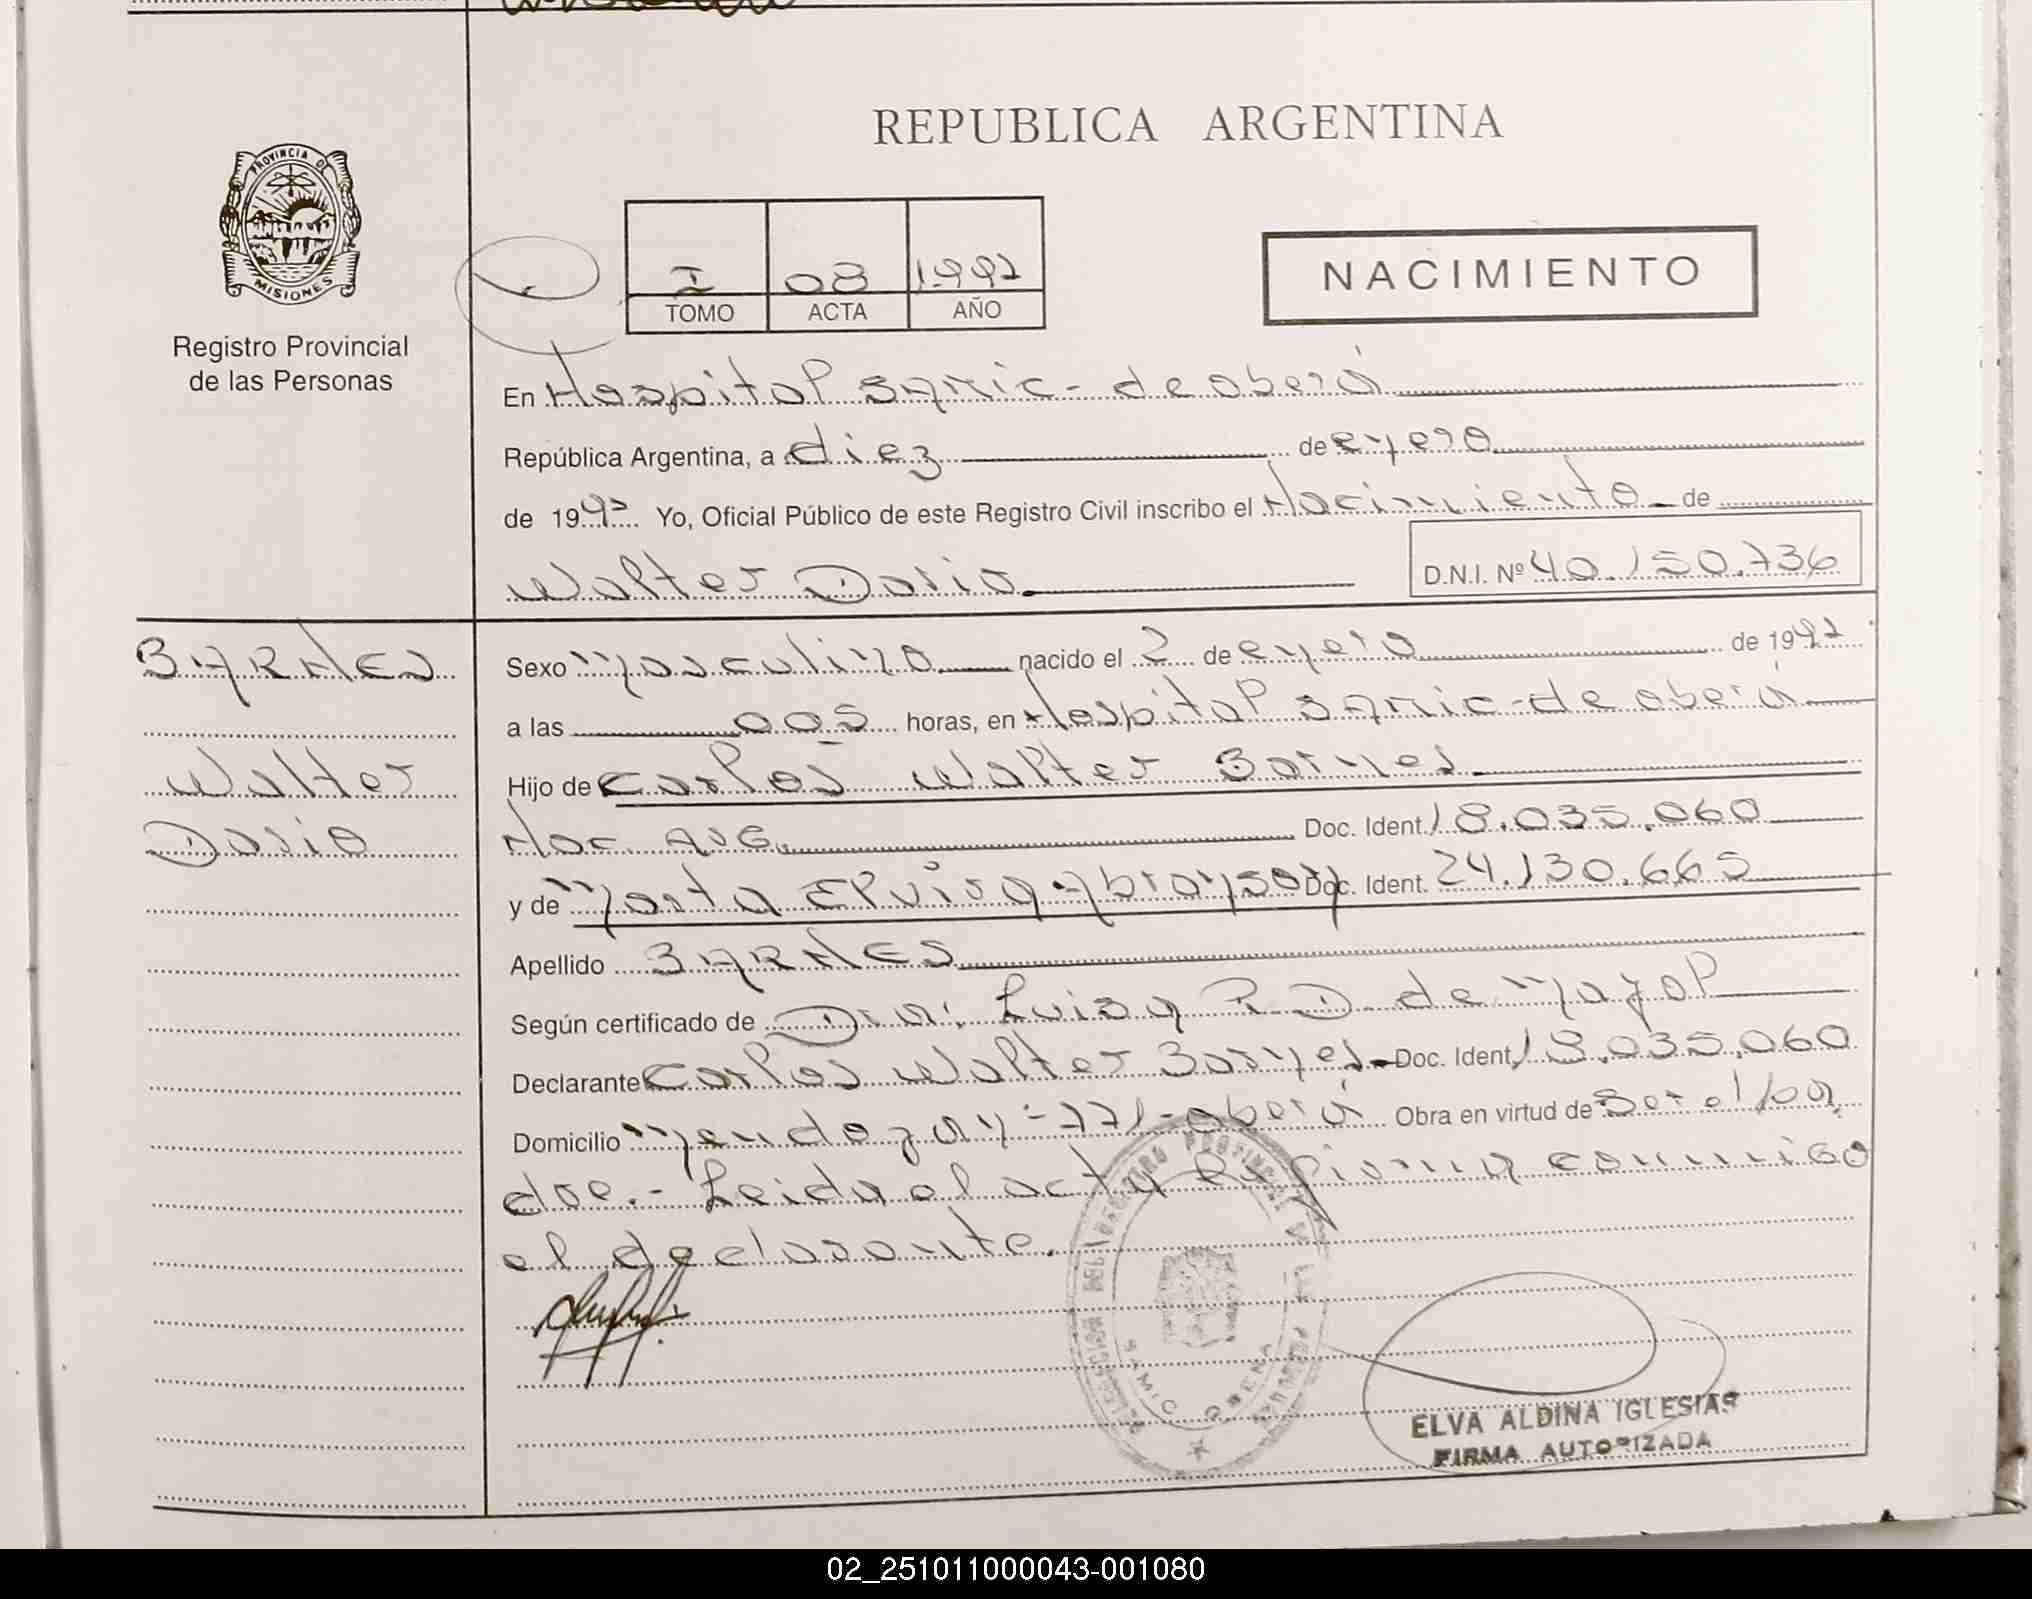 REPUBLICA ARGENTINA
PROVINCIA DE
MISIONES
Registro Provincial
de las Personas
I 08 1997
TOMO ACTA AÑO
NACIMIENTO
En Hospital SAMIC - de oberá
República Argentina, a diez de enero
de 1997 Yo, Oficial Público de este Registro Civil inscribo el Nacimiento de
Walter Dario D.N.I. Nº 40.150.736
BARNES
Walter
Dario
Sexo Masculino nacido el 2 de enero de 1997
a las 005 horas, en Hospital SAMIC - de oberá
Hijo de Carlos Walter Barnes
Nac. ARG. Doc. Ident. 18.035.060
y de Marta Elvira Abramson Doc. Ident. 24.130.665
Apellido BARNES
Según certificado de Dra. Luisa R. D. de Mayol
Declarante Carlos Walter Barnes Doc. Ident. 18.035.060
Domicilio 771 - oberá Obra en virtud de Ser el pa
dre.- Leida el acta la firma conmigo
el declarante.
SAMIC OBERA
ELVA ALDINA IGLESIAS
FIRMA AUTORIZADA
02_251011000043-001080